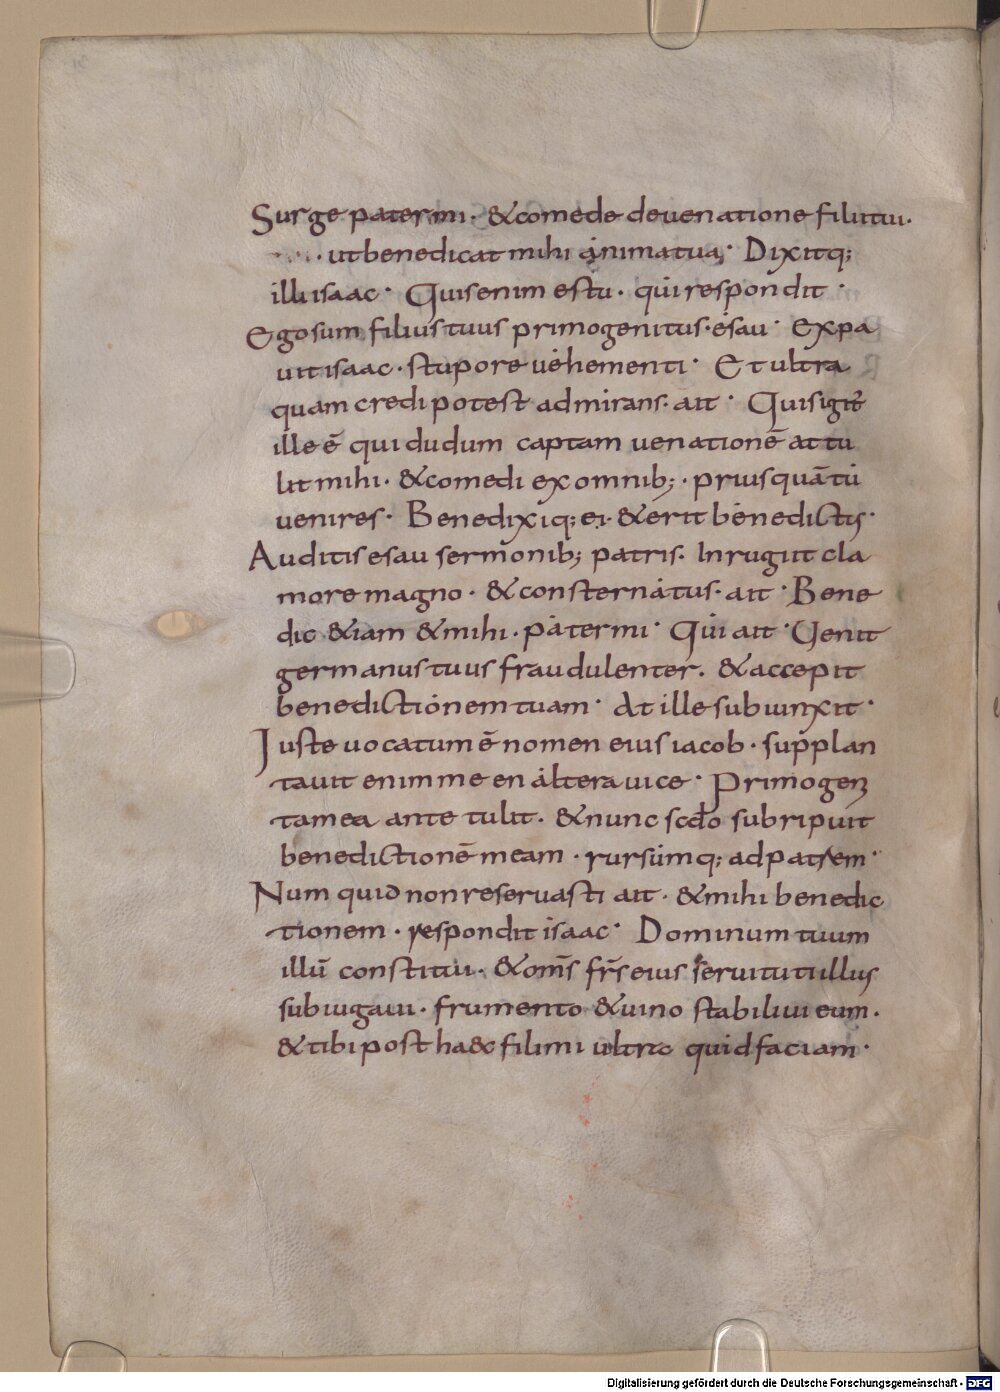 Surge pater mi · & comede de uenatione filii tui ·
· ut benedicat mihi anima tua · Dixitq;
illi isaac · Quis enim es tu · qui respondit ·
Ego sum filius tuus primogenitus · esau · Expa
uit isaac · stupore uehementi · Et ultra
quam credi potest admirans · ait · Quis igit᷑
ille ē qui dudum captam uenationē attu
lit mihi · & comedi ex omnib; · priusquā tu
uenires · Benedixiq; ei · & erit benedictus ·
Auditis esau sermonib; patris · Inrugiit cla
more magno · & consternatus · ait · Bene
dic &iam & mihi · pater mi · Qui ait · Uenit
germanus tuus fraudulenter · & accepit
benedictionem tuam · At ille subiunxit ·
Juste uocatum ē nomen eius iacob · supplan
tauit enim me en altera uice · Primogeni
ta mea ante tulit · & nunc scdo subripuit
benedictionē meam · rursumq; ad patrem ·
Num quid non reseruasti ait · & mihi benedic
tionem · respondit isaac · Dominum tuum
illū constitui · & om̄s fr̄s eius seruituti illius
subiugaui · frumento & uino stabiliui eum ·
& tibi post haec fili mi ultra quid faciam ·
Digitalisierung gefördert durch die Deutsche Forschungsgemeinschaft - DFG